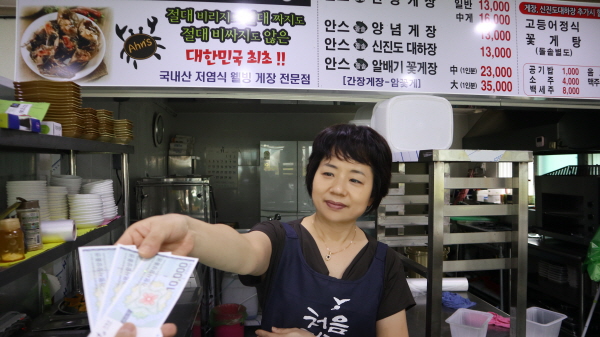 절대 비리지 않고 절대 짜지도
절대 비싸지도 않은
대한민국 최초 !!
국내산 저염식 웰빙 게장 전문점
Ahn's
일반 13,000
中게 16,000
안스 양념 게장 13,000
안스 신진도 대하장 13,000
안스 알배기 꽃게장 中 (1인분) 23,000
[간장게장-암꽃게] 大 (1인분) 35,000
게장, 신진도대하장 추가시
고등어정식
꽃 게 탕
(돌솥별도)
공 기 밥 1,000 음
소 주 4,000 맥주
백 세 주 8,000
10,000
처음